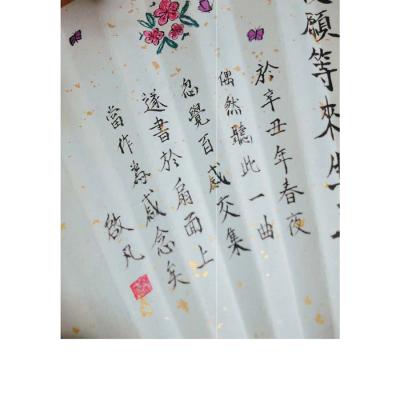 願等來生
於辛丑年春夜
偶然聽此一曲
忽覺百感交集
遂書於扇面上
當作為感念矣
啟凡